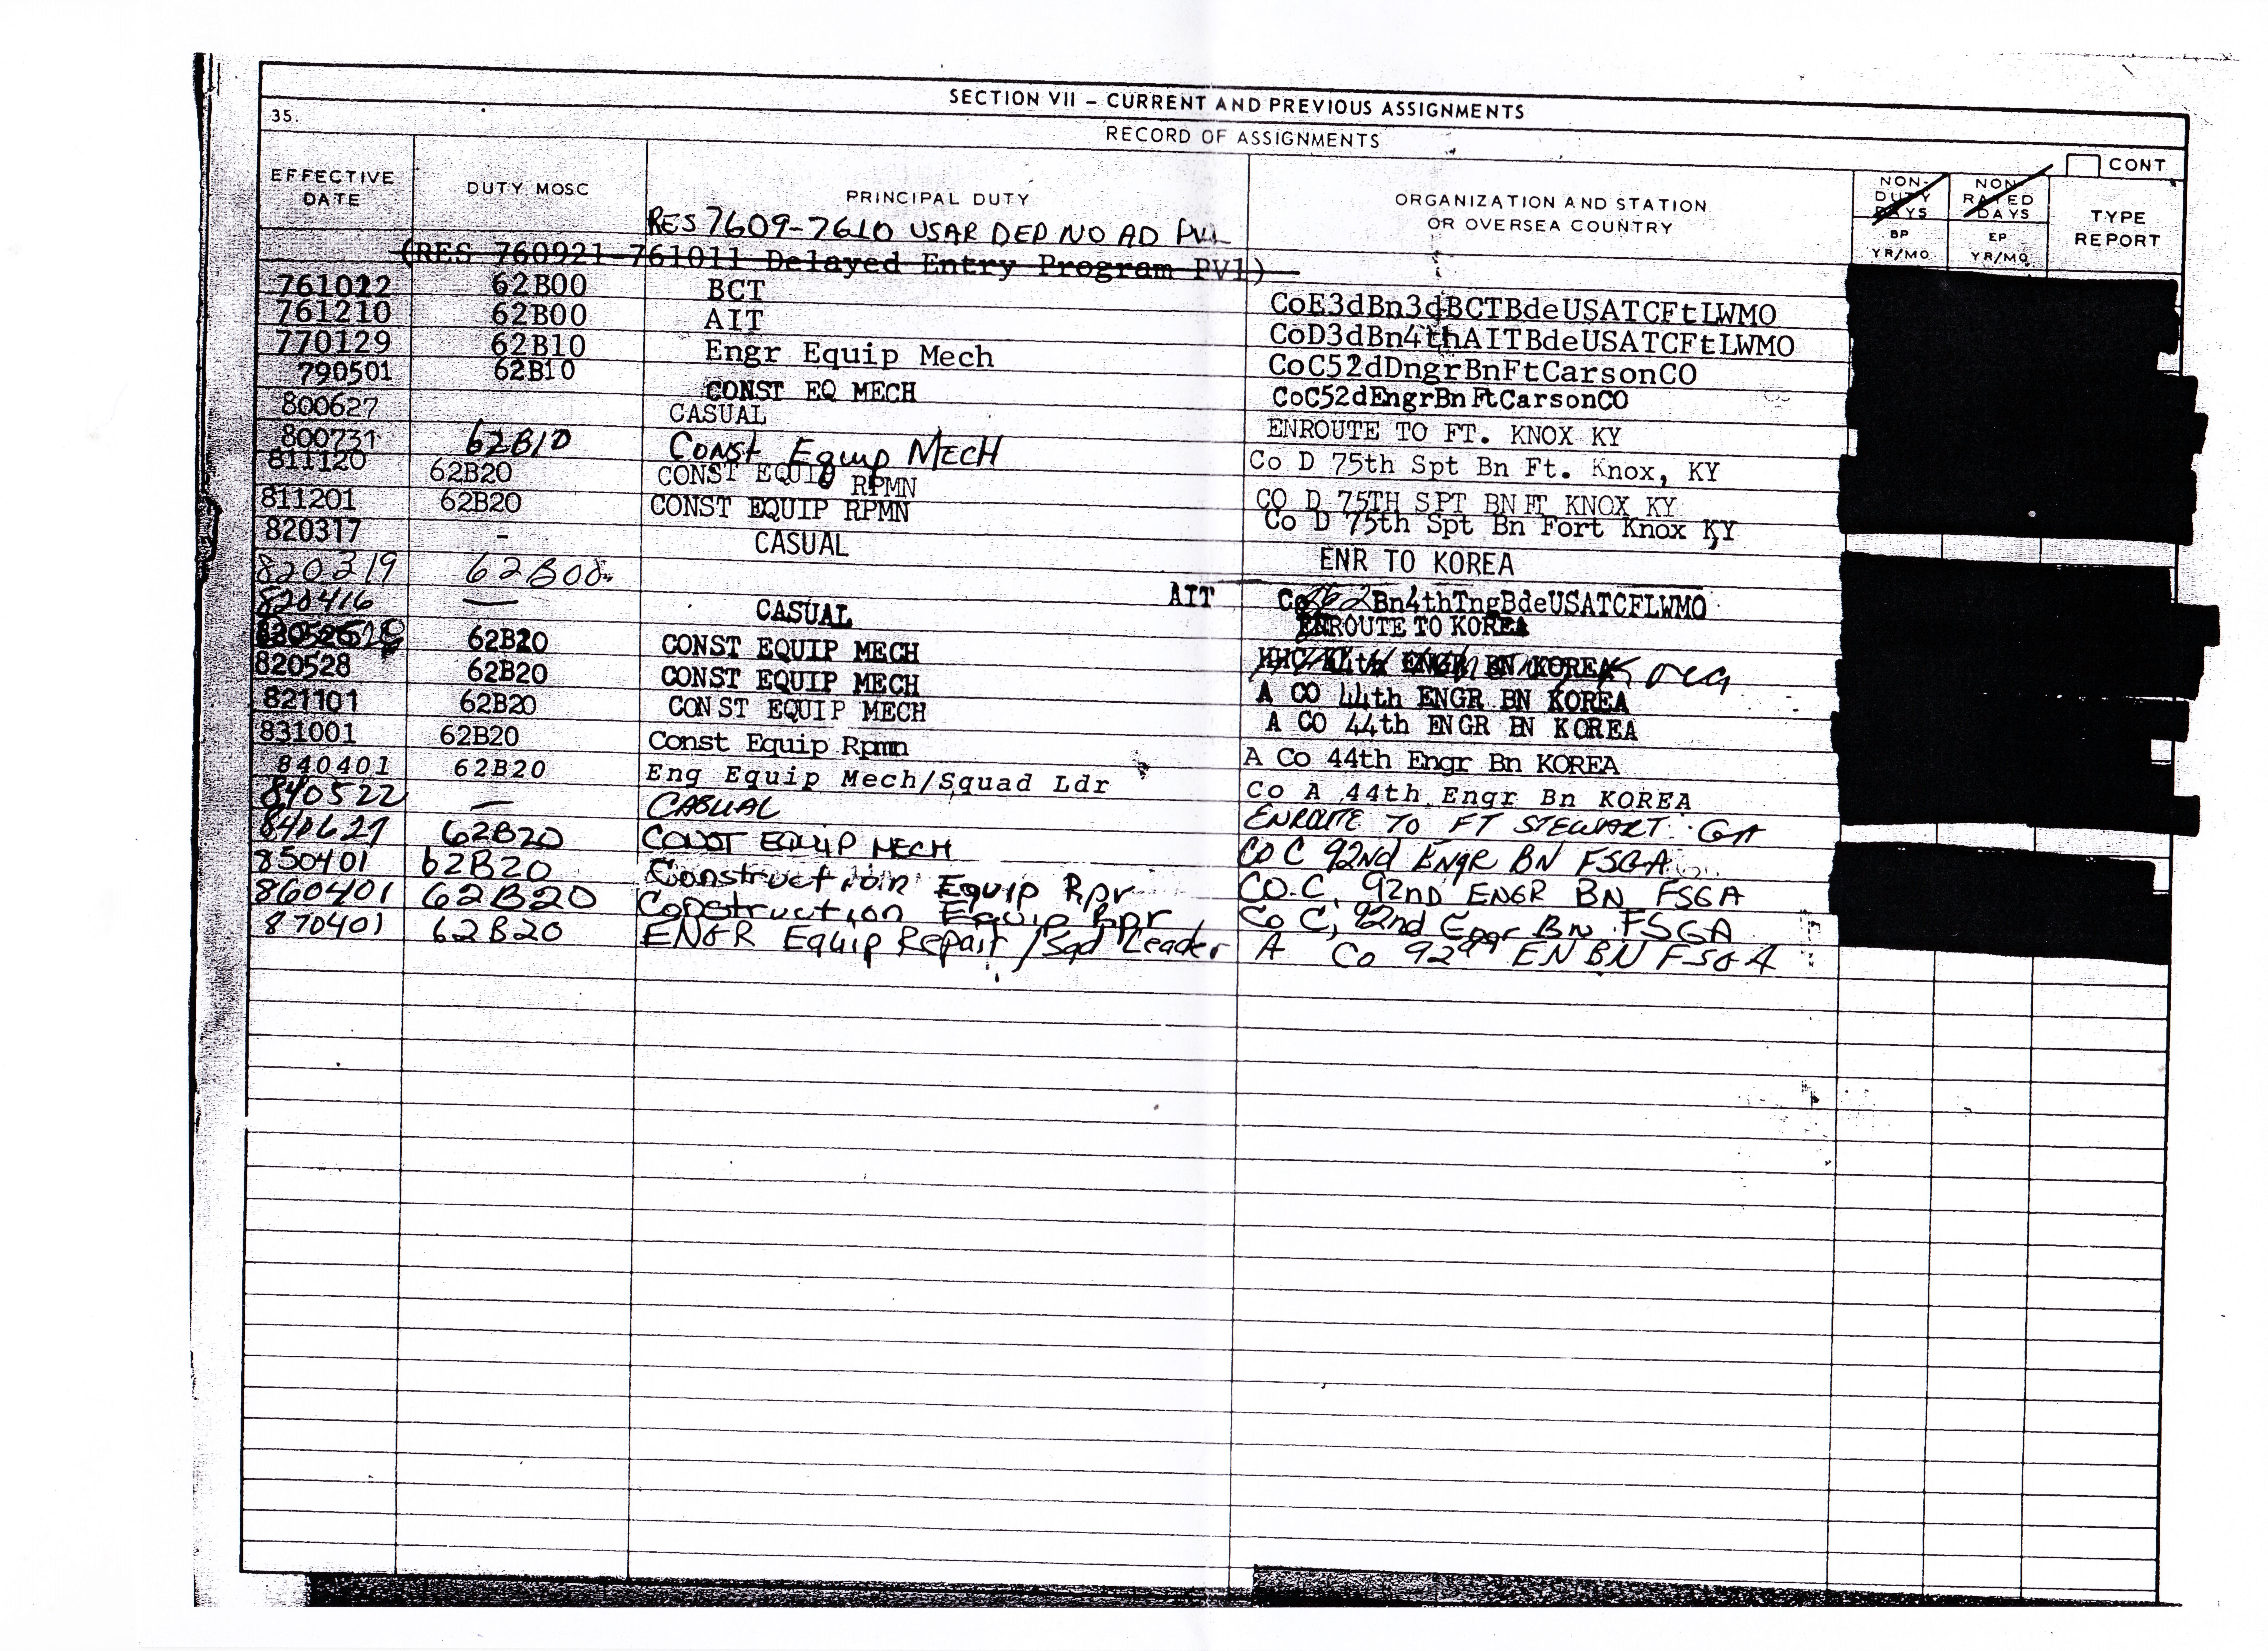 SECTION VII – CURRENT AND PREVIOUS ASSIGNMENTS
35.
RECORD OF ASSIGNMENTS
CONT
EFFECTIVE DATE DUTY MOSC PRINCIPAL DUTY ORGANIZATION AND STATION OR OVERSEA COUNTRY NON-DUTY DAYS BP YR/MO NON-RATED DAYS EP YR/MO TYPE REPORT
RES 7609-7610 USAR DEP NO AD
(RES 760921-761011 Delayed Entry Program PV1)
761022 62B00 BCT CoE3dBn3dBCTBdeUSATCFtLWMO
761210 62B00 AIT CoD3dBn4thAITBdeUSATCFtLWMO
770129 62B10 Engr Equip Mech CoC52dDngrBnFtCarsonCO
790501 62B10 CONST EQ MECH CoC52dEngrBnFtCarsonCO
800627 CASUAL ENROUTE TO FT. KNOX KY
800731 62B10 Const Equip MECH Co D 75th Spt Bn Ft. Knox, KY
811120 62B20 CONST EQUIP RPMN CO D 75TH SPT BN FT KNOX KY
811201 62B20 CONST EQUIP RPMN Co D 75th Spt Bn Fort Knox KY
820317 - CASUAL ENR TO KOREA
820319 62B00 AIT Bn4thTngBdeUSATCFLWMO
820416 — CASUAL ENROUTE TO KOREA
62B20 CONST EQUIP MECH HHC 44th ENGR BN KOREA Korea
820528 62B20 CONST EQUIP MECH A CO 44th ENGR BN KOREA
821101 62B20 CONST EQUIP MECH A CO 44th ENGR BN KOREA
831001 62B20 Const Equip Rpmn A Co 44th Engr Bn KOREA
840401 62B20 Eng Equip Mech/Squad Ldr Co A 44th Engr Bn KOREA
840522 — CASUAL ENROUTE TO FT STEWART GA
840627 62B20 CONST EQUIP MECH CO C 92ND ENGR BN FSGA
850401 62B20 Construction Equip Rpr CO.C, 92ND ENGR BN FSGA
860401 62B20 Construction Equip Rpr Co C, 92nd Engr BN FSGA
870401 62B20 ENGR Equip Repair/Sqd Leader A Co 92nd EN BN FSGA